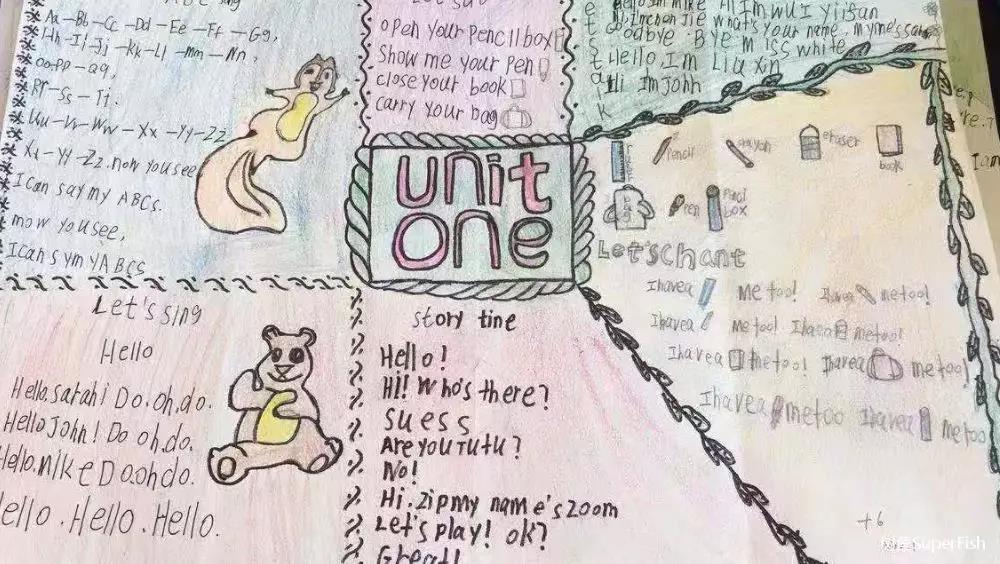 ABC song
Aa-Bb-Cc-Dd-Ee-Ff-Gg,
Hh-Ii-Jj-Kk-Ll-Mm-Nn,
Oo-Pp-Qq,
Rr-Ss-Tt.
Uu-Vv-Ww-Xx-Yy-Zz
Xx-Yy-Zz. now you see
I can say my ABCs.
mow you see,
I can symy ABCs
open your pencil box
Show me your pen
close your book
carry your bag
Hello Im Mike Hi Im WU Yifan
what's your name
Goodbye. Bye Miss White
Hello, I'm Liu Xin
Hi Im John
unit
one
pencil
crayon
eraser
book
bag
pen
Pencil
box
Let's chant
Ihavea me too! Ihavea metoo!
Ihavea Metoo! Ihavea metoo!
Ihavea metoo! Ihavea metoo!
Ihavea metoo Ihavea metoo
Let's sing
Hello
Hello.sarahi Do.oh.do.
Hello John! Do oh.do.
Hello.mike Do.ohdo.
Hello.Hello.Hello.
story tine
Hello!
Hi! Who's there?
suess
Are you TuTu?
No!
Hi.Zip my name's Zoom
Let's play! ok?
Great!
+6
SuperFish